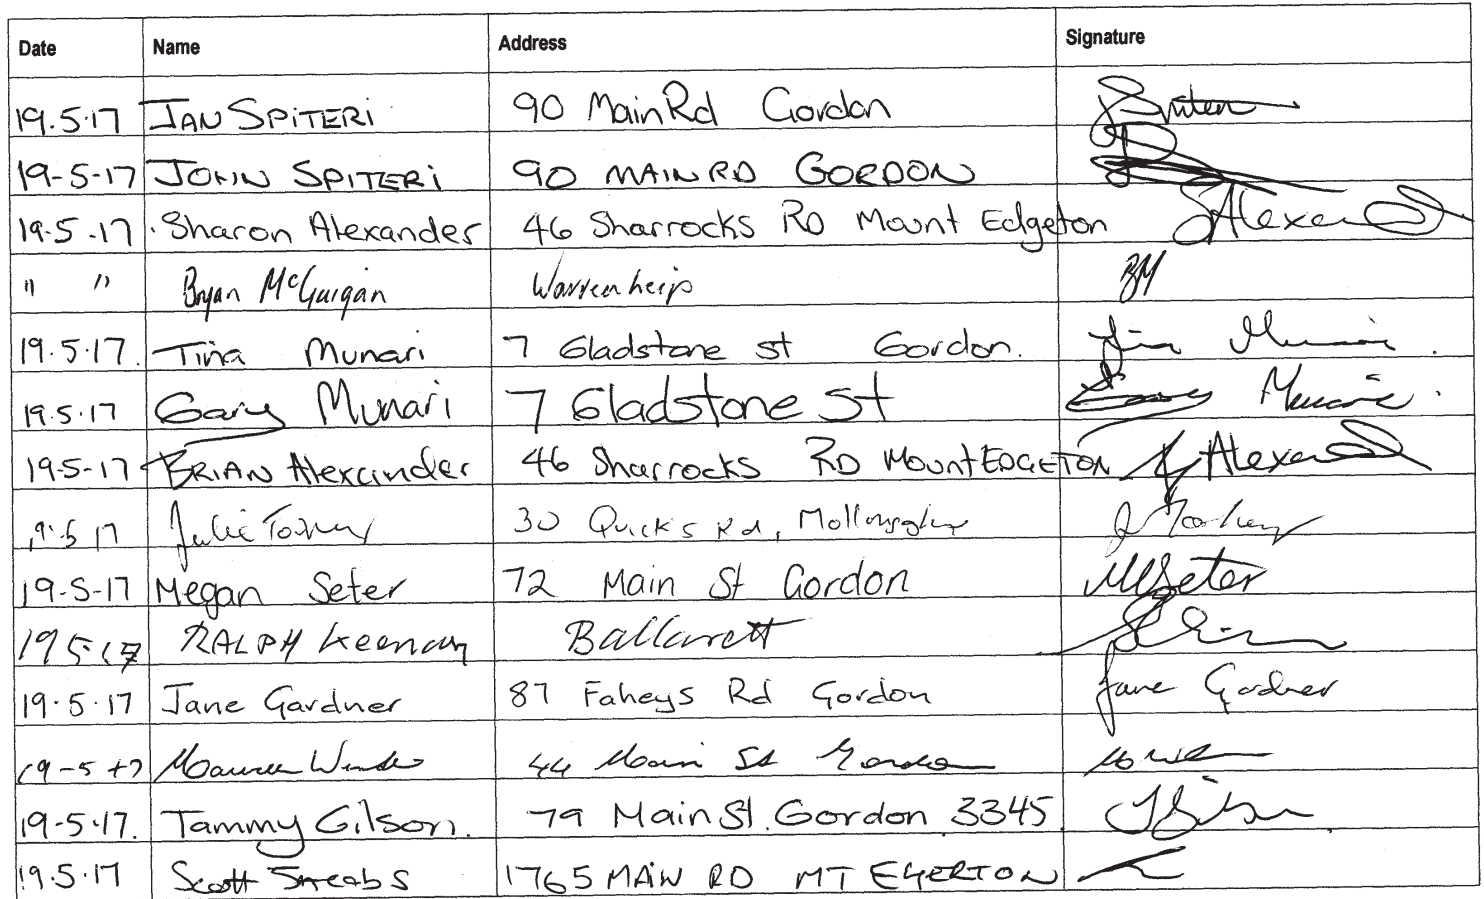 Date Name Address Signature
19.5.17 JAN SPITERI 90 Main Rd Gordon Spiteri
19-5-17 JOHN SPITERI 90 MAIN RD GORDON
19.5.17 Sharon Alexander 46 Sharrocks RD Mount Edgeton SAlexand
" " Bryan McGuigan Warrenheip BM
19.5.17. Tina Munari 7 Gladstone st Gordon. Tina Munari.
19.5.17 Gary Munari 7 Gladstone St Gary Munari.
19-5-17 BRIAN Alexander 46 Sharrocks RD Mount EDGETON Alexand
19.5 17 Julie Toohey 30 Quick's Rd, J Toohey
19-5-17 Megan Seter 72 Main St Gordon MSeter
19 5.17 RALPH Keenan Ballaratt
19.5.17 Jane Gardner 87 Faheys Rd Gordon Jane Gardner
19-5 17 Maureen 44 Main St Gordon
19-5.17. Tammy Gilson. 79 Main St. Gordon 3345 TGilson
19.5.17 Scott 1765 MAIN RD MT EGERTON